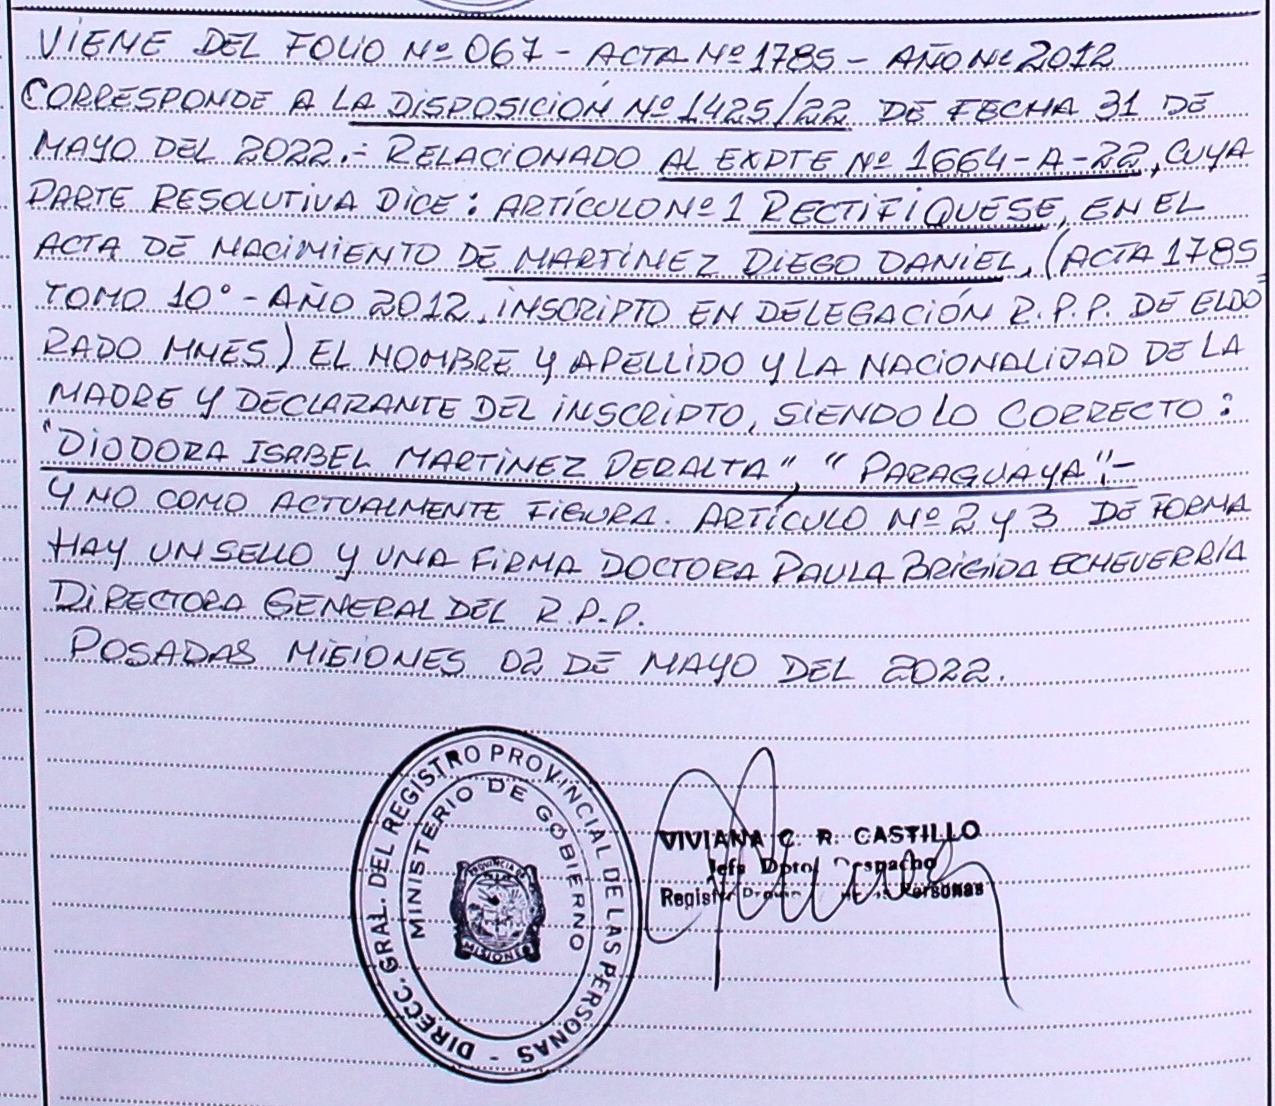 VIENE DEL FOLIO Nº 067 - ACTA Nº 1785 - AÑO Nº 2012
CORRESPONDE A LA DISPOSICIÓN Nº 1425/22 DE FECHA 31 DE
MAYO DEL 2022.- RELACIONADO AL EXPTE Nº 1664-A-22, CUYA
PARTE RESOLUTIVA DICE: ARTÍCULO Nº 1 RECTIFÍQUESE, EN EL
ACTA DE NACIMIENTO DE MARTINEZ DIEGO DANIEL, (ACTA 1785
TOMO 10° - AÑO 2012, INSCRIPTO EN DELEGACIÓN R.P.P. DE ELDO
RADO MNES) EL NOMBRE Y APELLIDO Y LA NACIONALIDAD DE LA
MADRE Y DECLARANTE DEL INSCRIPTO, SIENDO LO CORRECTO:
"DIODORA ISABEL MARTINEZ PERALTA", "PARAGUAYA".-
Y NO COMO ACTUALMENTE FIGURA. ARTÍCULO Nº 2 Y 3 DE FORMA
HAY UN SELLO Y UNA FIRMA DOCTORA PAULA BRIGIDA ECHEVERRÍA
DIRECTORA GENERAL DEL R.P.P.
POSADAS MISIONES 02 DE MAYO DEL 2022.
DIRECC. GRAL. DEL REGISTRO PROVINCIAL DE LAS PERSONAS -
MINISTERIO DE GOBIERNO
PROVINCIA DE
MISIONES
VIVIANA C. R. CASTILLO
Jefe Dpto. Despacho
Personas